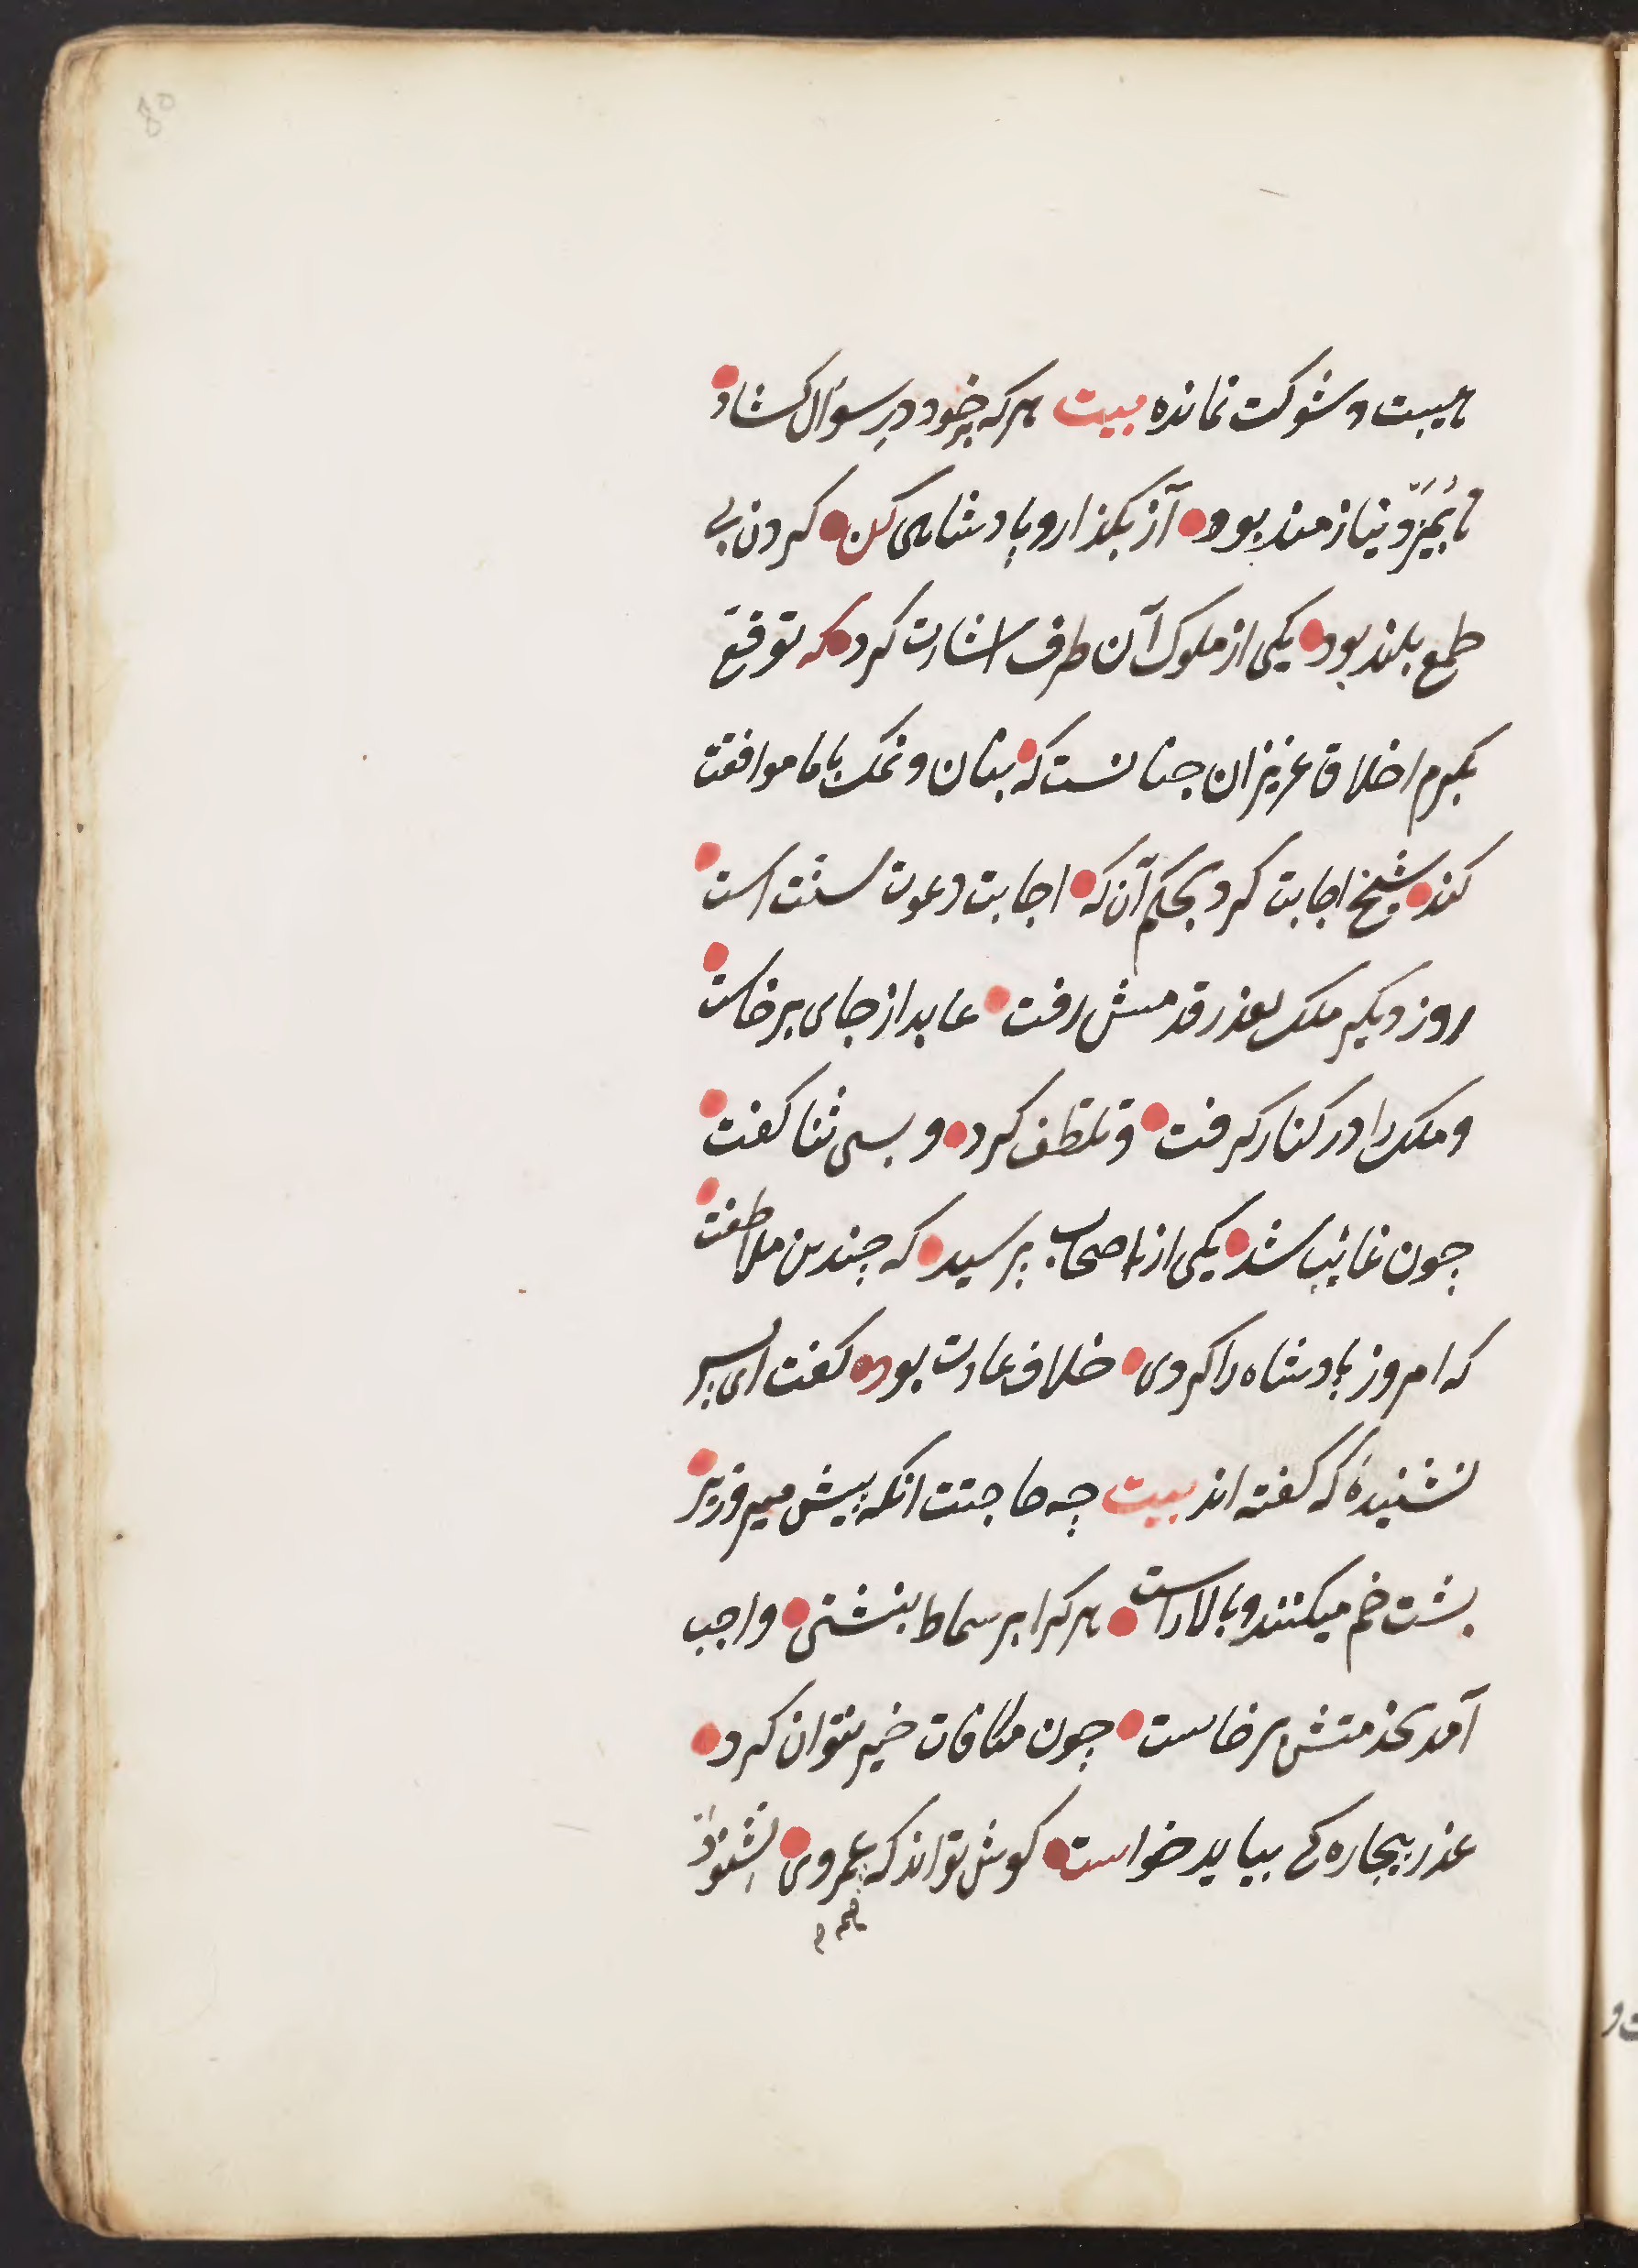 هیبت و شوکت نمانده بیت هرکه بر خود در سؤال کشاد
تا بمیرد نیازمند بود آز بکذار و پادشاهی کن کردن بی
طمع بلند بود یکی از ملوک آن طرف اشارت کرد که توقع
بکرم اخلاق عزیزان چنانست که بنان و نمک با ما موافقت
کند شیخ اجابت کرد بحکم آن که اجابت دعوت سنّت است
روز دیکر ملک بعذر قدمش رفت عابد از جای برخاست
و ملک را در کنار کرفت و تلطّف کرد و بسی ثنا کفت
چون غائب شد یکی از اصحاب پرسید که چندین ملاطفت
که امروز پادشاه را کردی خلاف عادت بود کفت ای پسر
نشنیدهٔ که کفته اند بیت چه حاجتت انکه پیش میر و وزیر
پشت خم میکنند و بالا راست هرکرا بر سماط بنشستی واجب
آمد بخدمتش برخاست چون مکافات خیر نتوان کرد
عذر بیچاره کی بیاید خواست کوش تواند که بعمر وی نشنود
همه